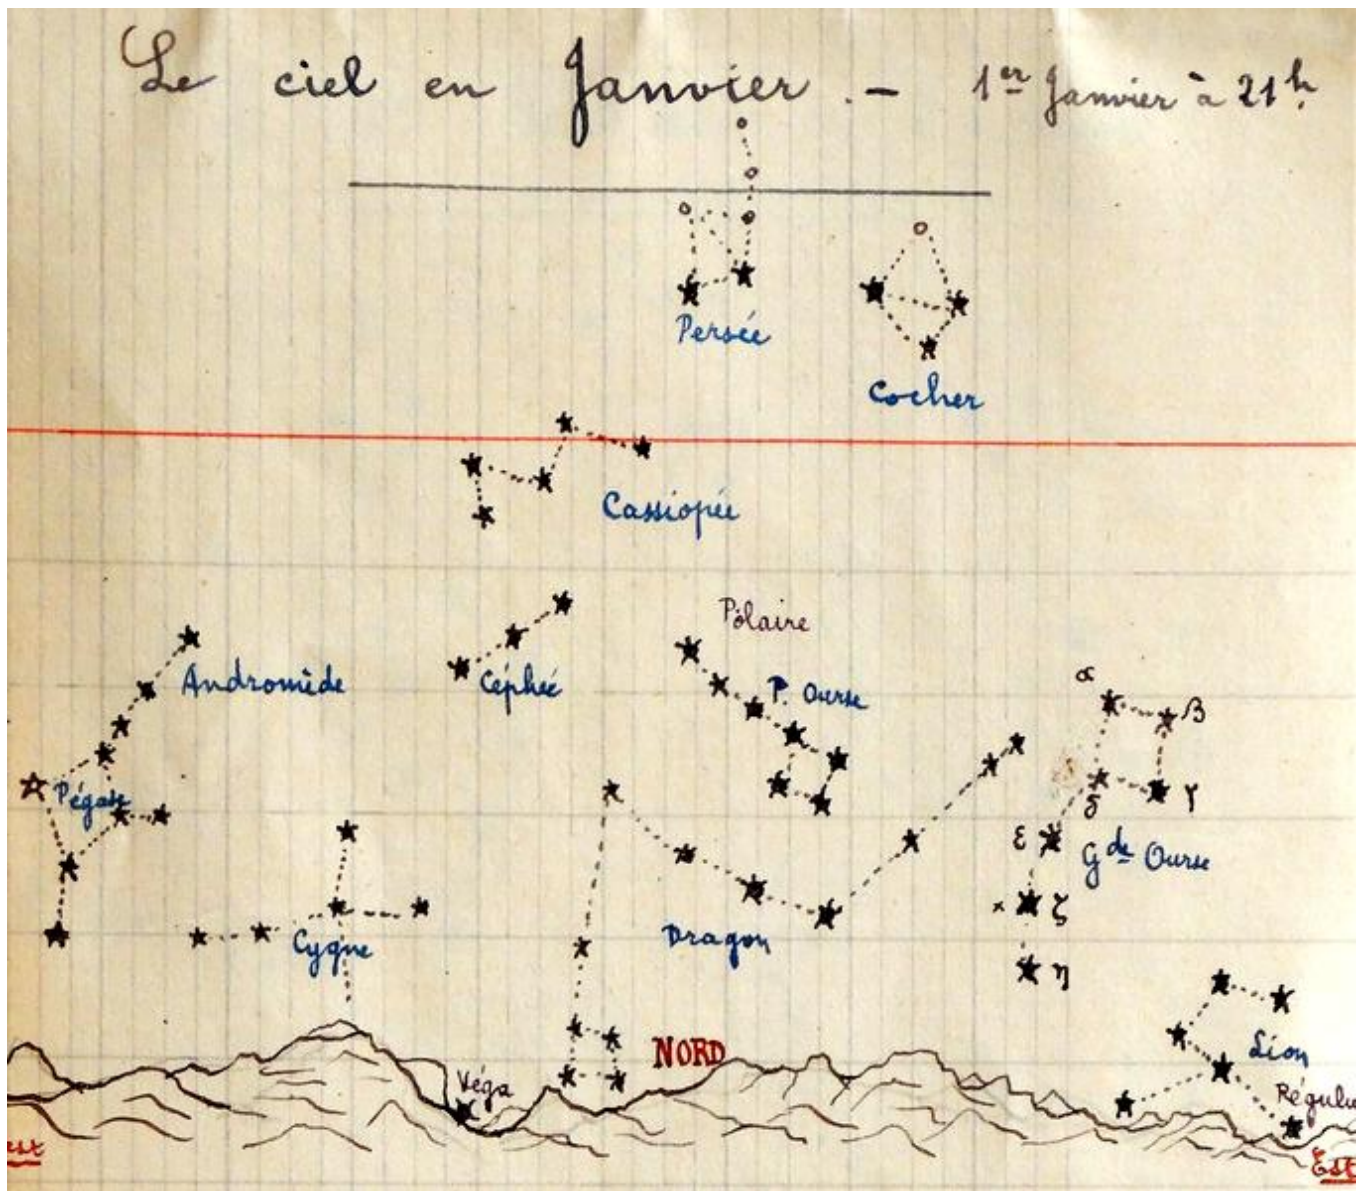 Le ciel en Janvier. - 1er Janvier à 21h
Persée
Cocher
Cassiopée
Polaire
Andromède
Céphée
P. Ourse
α
β
Pégase
δ
γ
ε
Gde Ourse
ζ
Cygne
Dragon
η
NORD
Lion
Véga
Régulu
est
Est